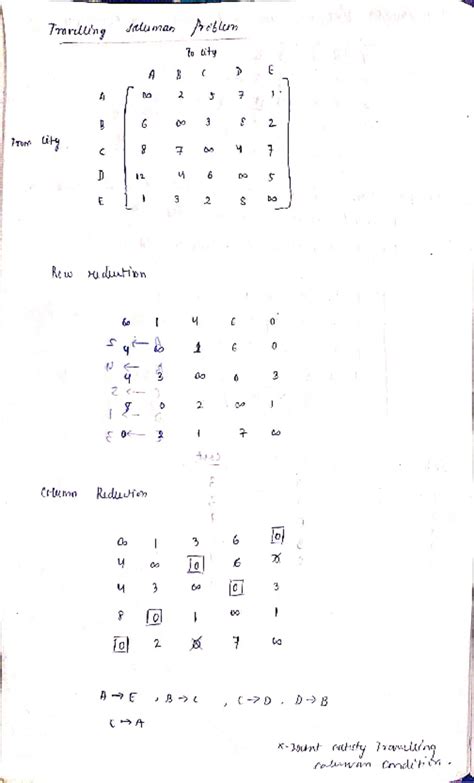 Travelling salesman Problem
To city
A B C D E
A ∞ 2 5 7 1
B 6 ∞ 3 8 2
From city
C 8 7 ∞ 4 7
D 12 4 6 ∞ 5
E 1 3 2 8 ∞
Row reduction
∞ 1 4 6 0
4 ∞ 1 6 0
4 3 ∞ 0 3
8 0 2 ∞ 1
0 2 1 7 ∞
Column Reduction
∞ 1 3 6 0
4 ∞ 0 6 0
4 3 ∞ 0 3
8 0 1 ∞ 1
0 2 0 7 ∞
A → E , B → C , C → D . D → B
→ A
satisfy Travelling
salesman condition.